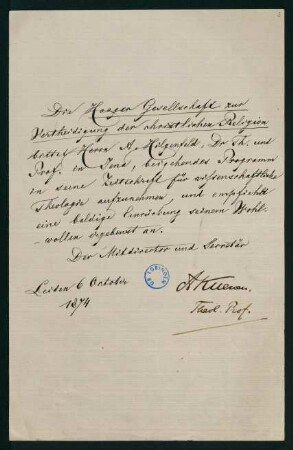 Die Haager Gesellschaft zur
Vertheidigung der christlichen Religion
bittet Herrn A. Hilgenfeld, Dr. Th. und
Prof. in Jena, beigehendes Programm
in seine Zeitschrift für wissenschaftliche
Theologie aufzunehmen, und empfiehlt
eine baldige Einrückung seinem Wohl-
-wollen ergebenst an.
Der Mitdirector und Secretär
Leiden 6 October
1874
A Kuenen.
Theol. Prof.